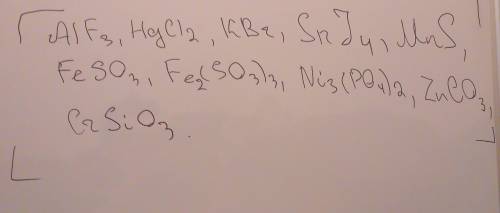 AlF3, HgCl2, KBr, SnJ4, MnS,
FeSO3, Fe2(SO3)3, Ni3(PO4)2, ZnCO3,
CrSiO3.